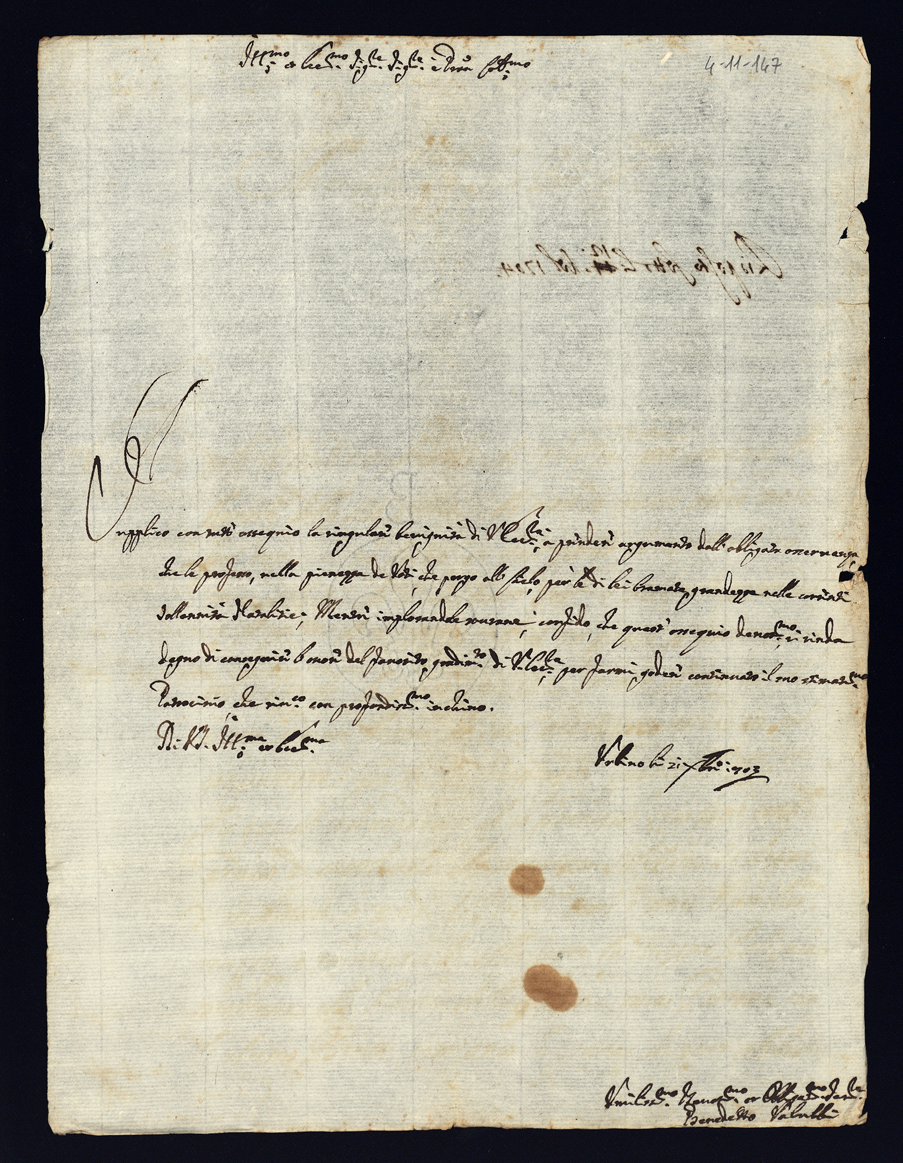 Ill:mo et Ecc:mo Sig:re Sig:re e Pron Col:mo
4-11-147
Supplico con tutto ossequio la singulare benignità di V. Ecc:za, à prendere argumento dall'obligata osservanza,
che le professo, nella pienezza de Voti, che porgo al Cielo, per le di lei bramate grandezze nelle correnti
sollennità Natalitie; Mentre implorandole, confido, che questo ossequio si renda
degno di conseguire l'onore del gradim:to di V. Ecc:za, per farmi godere continuato il suo stimatis:mo
Patrocinio, che con profondis:mo inchino.
Di V. E. Ill:ma et Ecc:ma
Urbino li 21 Xbre 1703
Umiliss:mo Devot:mo et Obligat:mo Ser:re
Benedetto